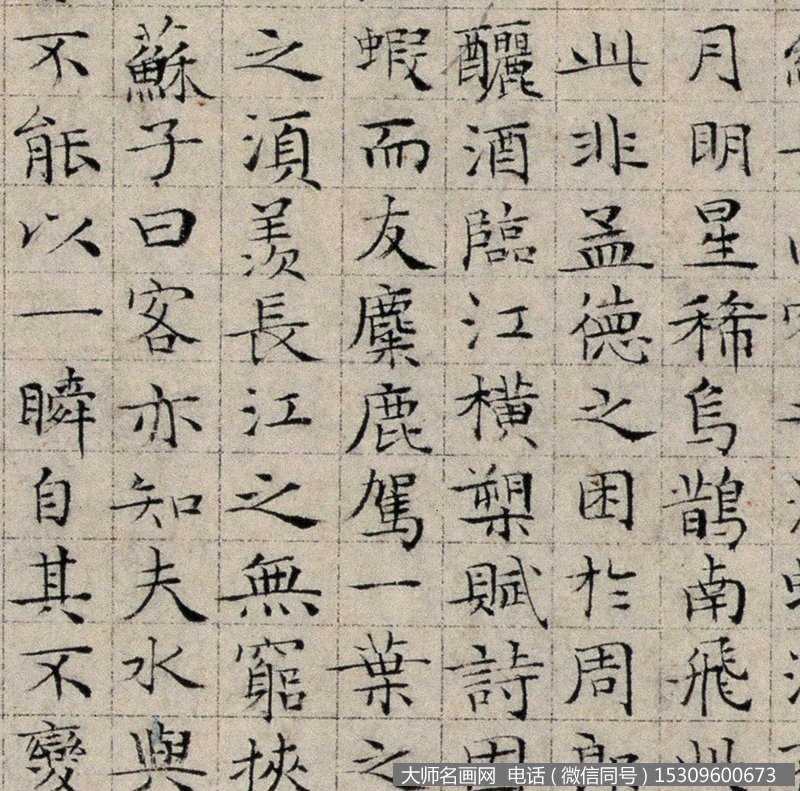 月明星稀烏鵲南飛此
此非孟德之困於周郎
釃酒臨江橫槊賦詩固
蝦而友麋鹿駕一葉之
之湏羨長江之無窮挾
蘇子曰客亦知夫水與
不能以一瞬自其不變
大师名画网 电话（微信同号）15309600673